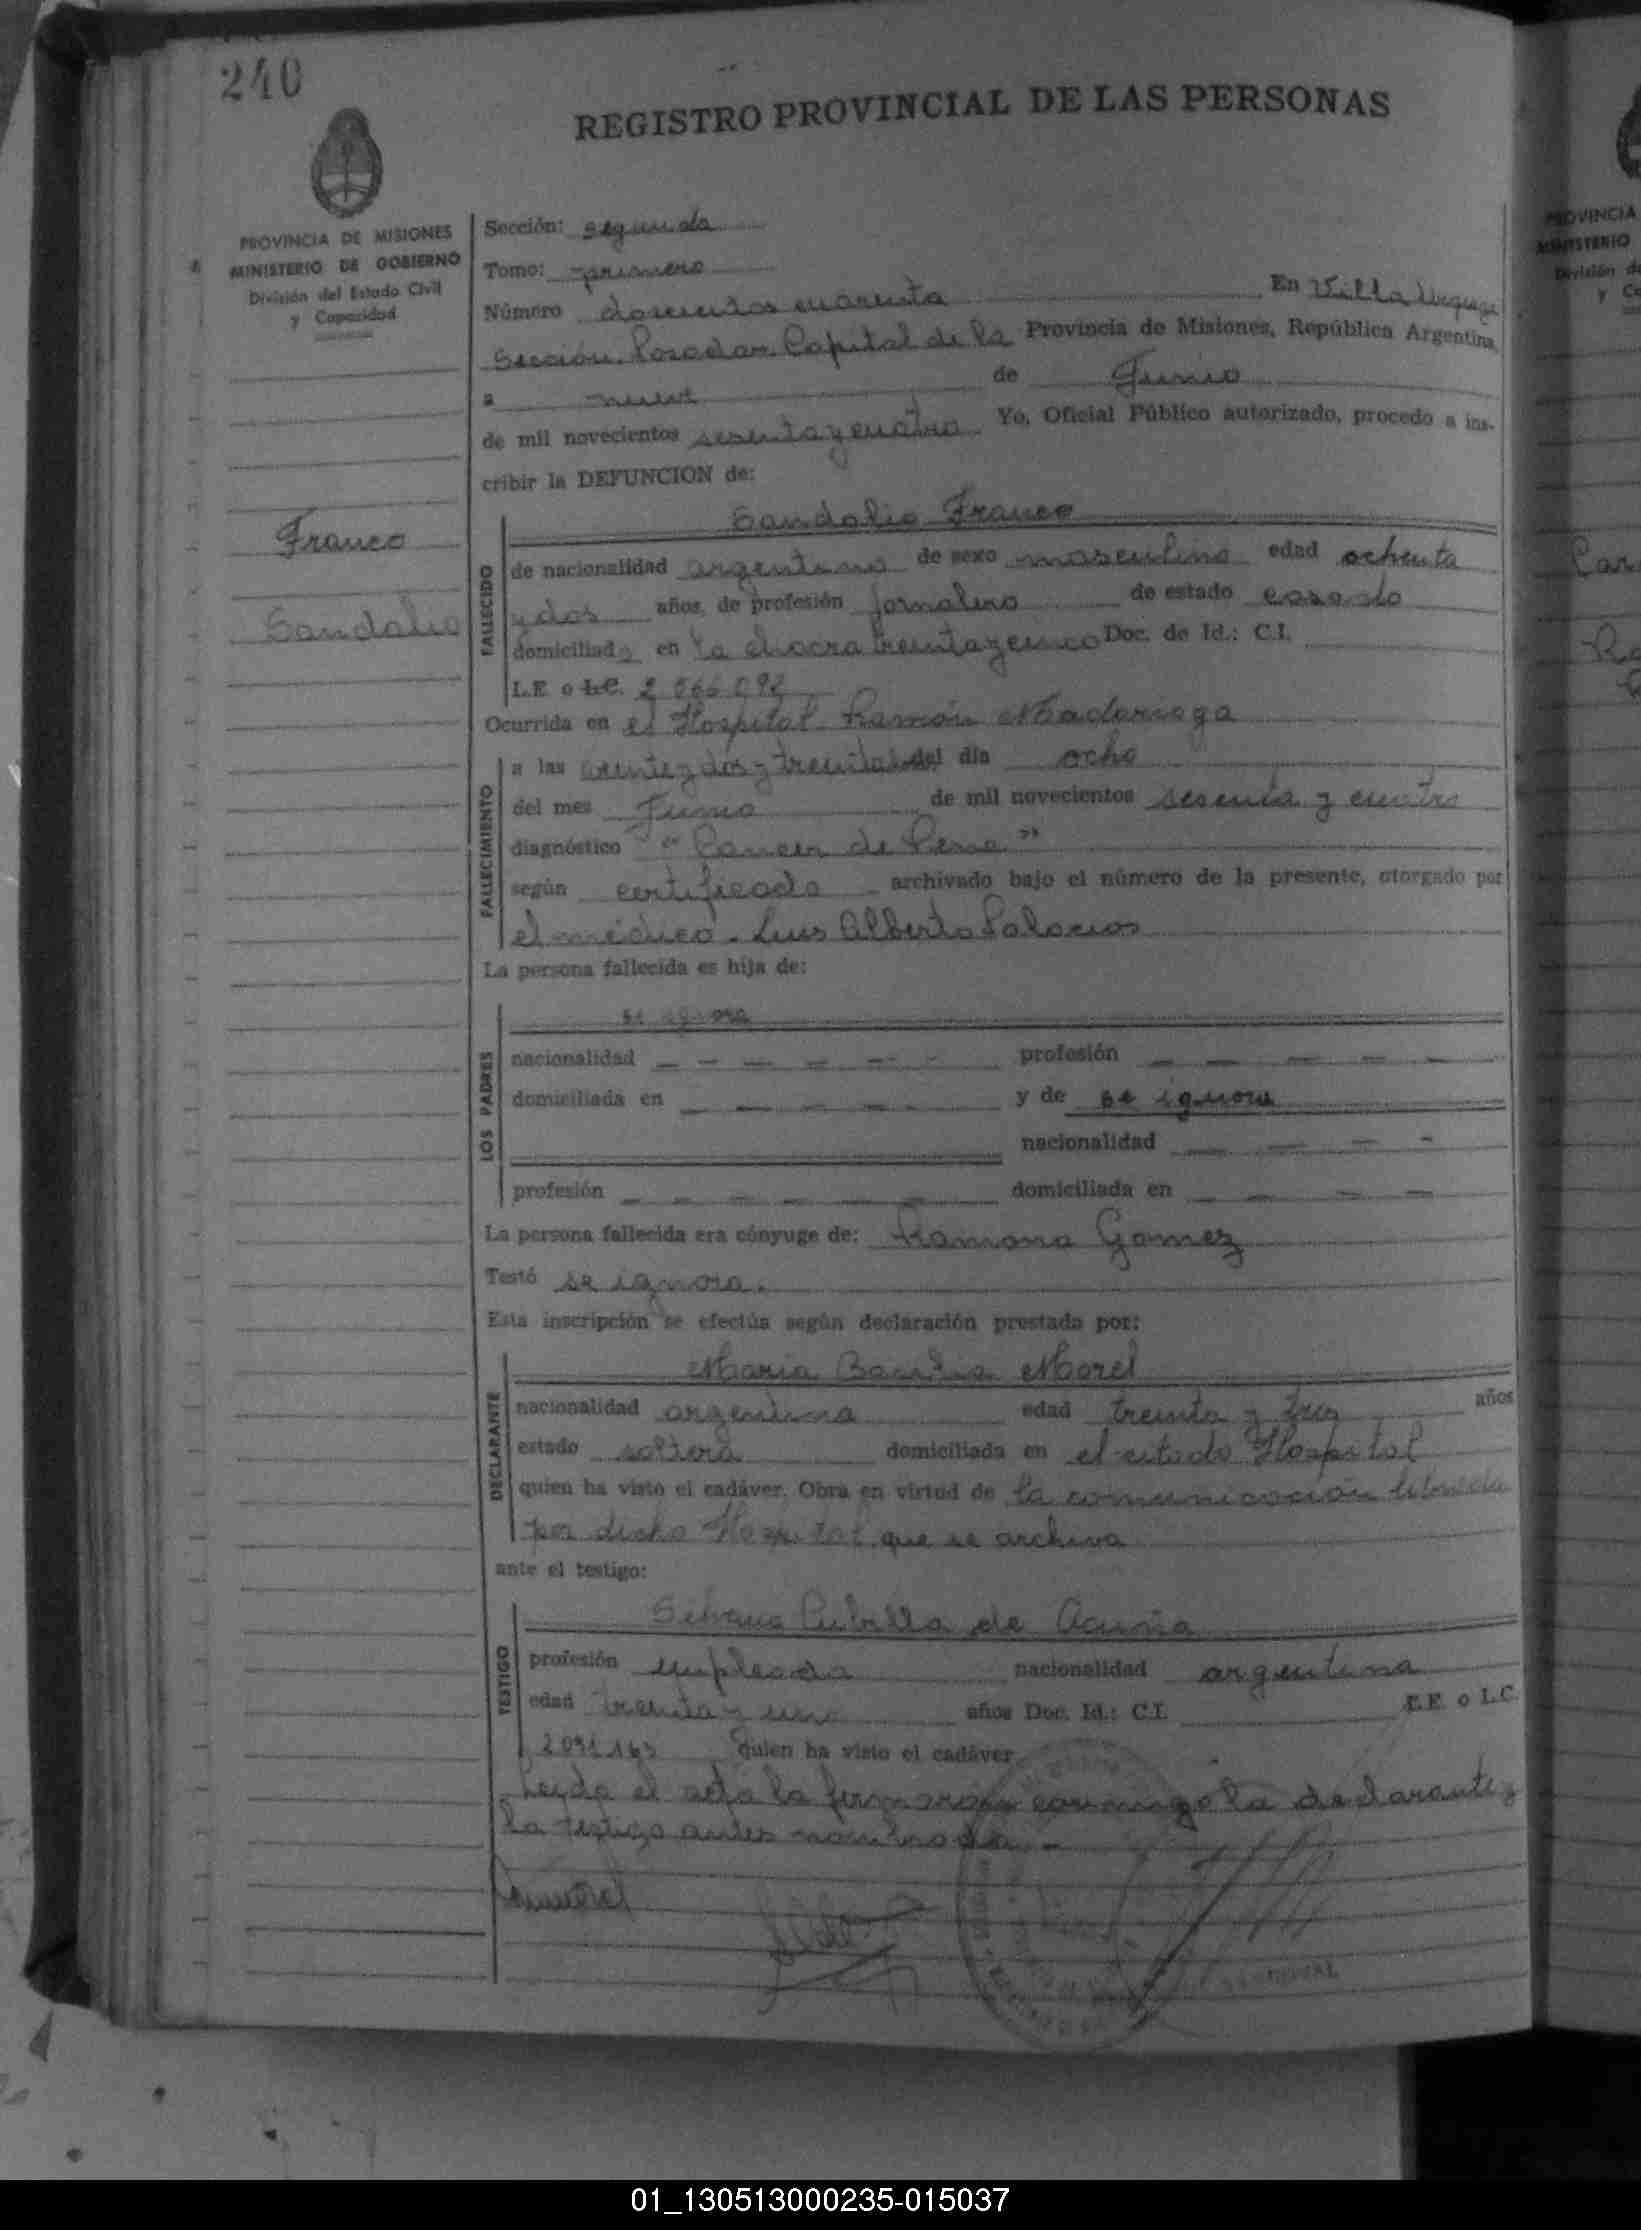 240
REGISTRO PROVINCIAL DE LAS PERSONAS
PROVINCIA DE MISIONES
MINISTERIO DE GOBIERNO
División del Estado Civil
y Capacidad
Franco
Sandalio
Sección: segunda
Tomo: primero
Número doscientos cuarenta En Villa Urquiza
Sección, Posadas Capital de la Provincia de Misiones, República Argentina,
a nueve de Junio
de mil novecientos sesenta y cuatro Yo, Oficial Público autorizado, procedo a ins-
cribir la DEFUNCION de:
FALLECIDO
Sandalio Franco
de nacionalidad argentino de sexo masculino edad ochenta
y dos años, de profesión jornalero de estado casado
domiciliado en la chacra treinta y cinco Doc. de Id.: C.I.
L.E. o L.C. 2 066 092
Ocurrida en el Hospital Ramón Madariaga
FALLECIMIENTO
a las veinte y dos y treinta del día ocho
del mes Junio de mil novecientos sesenta y cuatro
diagnóstico "Cancer de"
según certificado archivado bajo el número de la presente, otorgado por
el médico. Luis Alberto Palacios
La persona fallecida es hija de:
LOS PADRES
se ignora
nacionalidad — — — — — — profesión — — — — —
domiciliada en — — — — y de se ignora
nacionalidad — — — -
profesión — — — — — — domiciliada en — — — —
La persona fallecida era cónyuge de: Ramona Gomez
Testó se ignora.
Esta inscripción se efectúa según declaración prestada por:
DECLARANTE
Maria Morel
nacionalidad argentina edad treinta y tres años
estado soltera domiciliada en el citado Hospital
quien ha visto el cadáver. Obra en virtud de la comunicación librada
por dicho Hospital que se archiva
ante el testigo:
TESTIGO
Cubilla de Acuña
profesión empleada nacionalidad argentina
edad treinta y uno años Doc. Id.: C.I. L.E. o L.C.
2091163 quien ha visto el cadáver
Leida el acta la firmaron conmigo la declarante y
la testigo antes nombrada. -
PROVINCIA
MINISTERIO
División de
y Ca
01_130513000235-015037